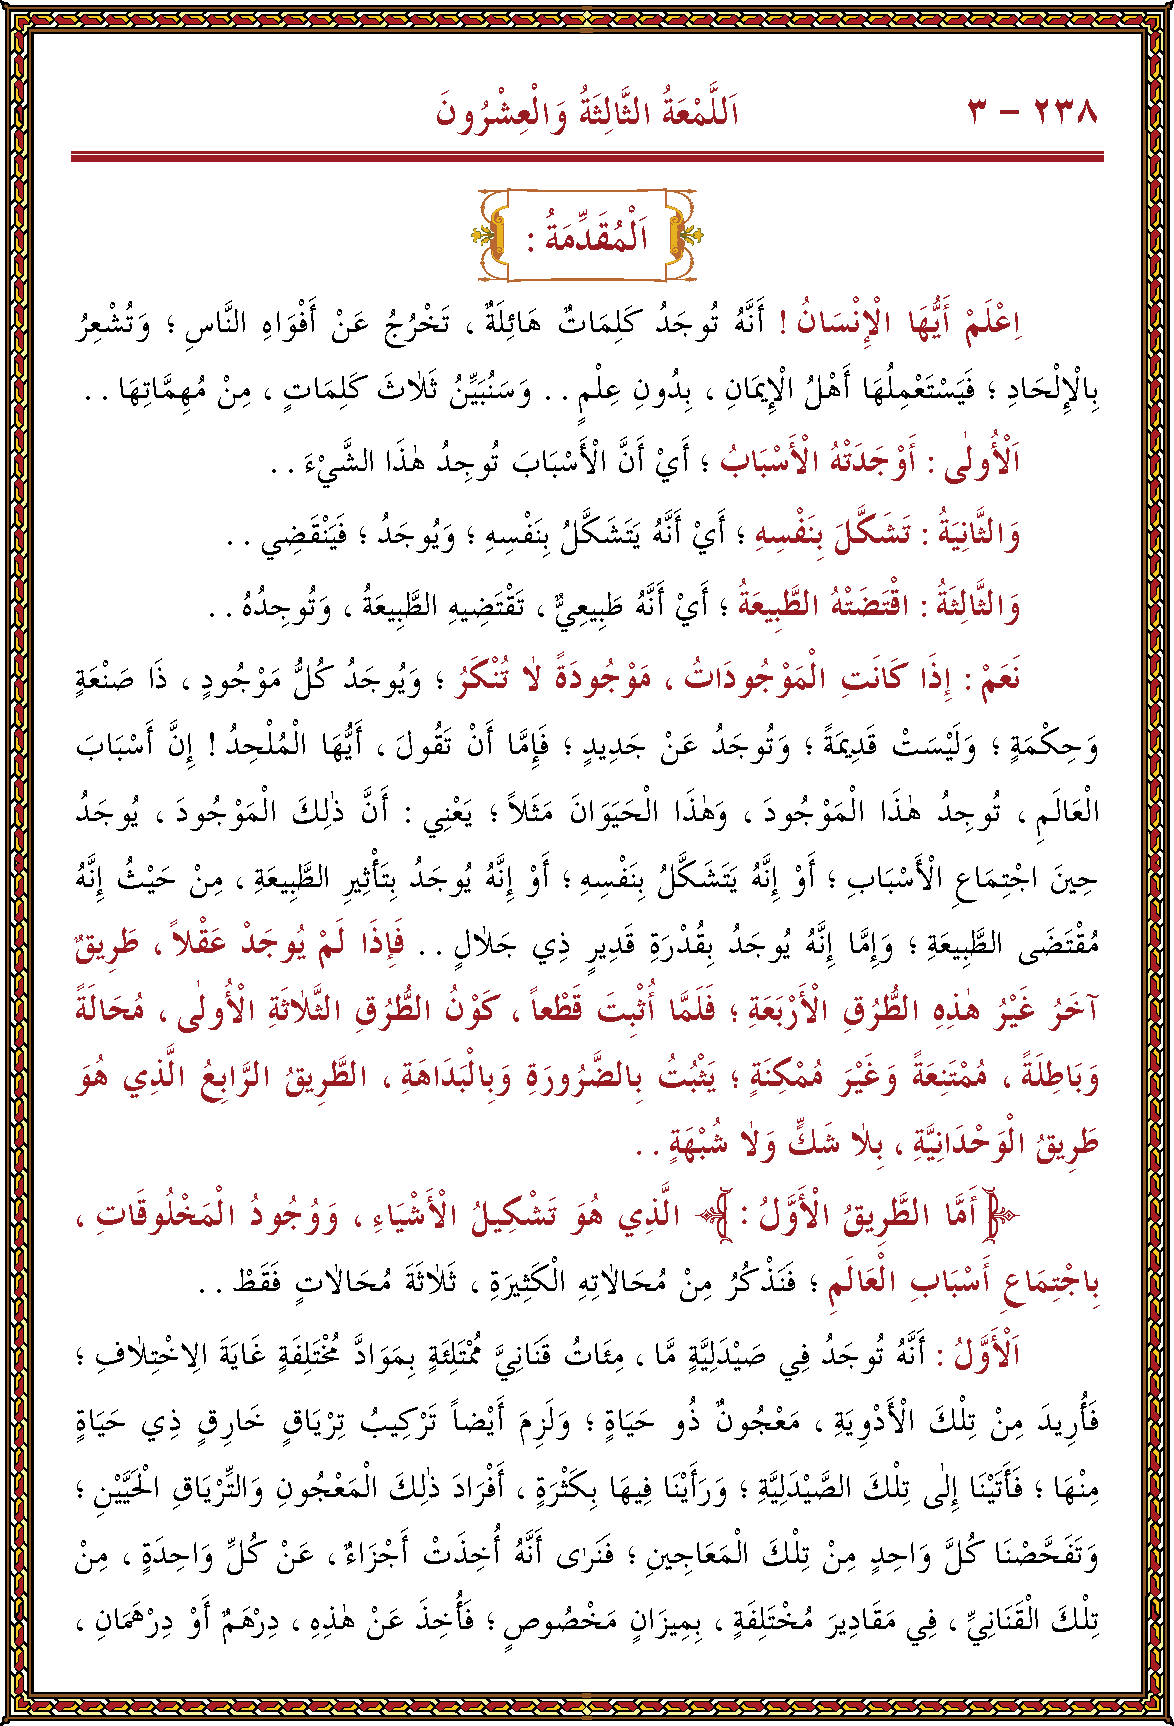 ٢٣٨ - ٣
اَللَّمْعَةُ الثَّالِثَةُ وَالْعِشْرُونَ
اَلْمُقَدِّمَةُ :
اِعْلَمْ أَيُّهَا الْإِنْسَانُ ! أَنَّهُ تُوجَدُ كَلِمَاتٌ هَائِلَةٌ ، تَخْرُجُ عَنْ أَفْوَاهِ النَّاسِ ؛ وَتُشْعِرُ
بِالْإِلْحَادِ ؛ فَيَسْتَعْمِلُهَا أَهْلُ الْإِيمَانِ ، بِدُونِ عِلْمٍ . . وَسَنُبَيِّنُ ثَلٰاثَ كَلِمَاتٍ ، مِنْ مُهِمَّاتِهَا . .
اَلْأُولٰى : أَوْجَدَتْهُ الْأَسْبَابُ ؛ أَيْ أَنَّ الْأَسْبَابَ تُوجِدُ هٰذَا الشَّيْءَ . .
وَالثَّانِيَةُ : تَشَكَّلَ بِنَفْسِهِ ؛ أَيْ أَنَّهُ يَتَشَكَّلُ بِنَفْسِهِ ؛ وَيُوجَدُ ؛ فَيَنْقَضِي . .
وَالثَّالِثَةُ : اقْتَضَتْهُ الطَّبِيعَةُ ؛ أَيْ أَنَّهُ طَبِيعِيٌّ ، تَقْتَضِيهِ الطَّبِيعَةُ ، وَتُوجِدُهُ . .
نَعَمْ : إِذَا كَانَتِ الْمَوْجُودَاتُ ، مَوْجُودَةً لٰا تُنْكَرُ ؛ وَيُوجَدُ كُلُّ مَوْجُودٍ ، ذَا صَنْعَةٍ
وَحِكْمَةٍ ؛ وَلَيْسَتْ قَدِيمَةً ؛ وَتُوجَدُ عَنْ جَدِيدٍ ؛ فَإِمَّا أَنْ تَقُولَ ، أَيُّهَا الْمُلْحِدُ ! إِنَّ أَسْبَابَ
الْعَالَمِ ، تُوجِدُ هٰذَا الْمَوْجُودَ ، وَهٰذَا الْحَيَوَانَ مَثَلاً ؛ يَعْنِي : أَنَّ ذٰلِكَ الْمَوْجُودَ ، يُوجَدُ
حِينَ اجْتِمَاعِ الْأَسْبَابِ ؛ أَوْ إِنَّهُ يَتَشَكَّلُ بِنَفْسِهِ ؛ أَوْ إِنَّهُ يُوجَدُ بِتَأْثِيرِ الطَّبِيعَةِ ، مِنْ حَيْثُ إِنَّهُ
مُقْتَضَى الطَّبِيعَةِ ؛ وَإِمَّا إِنَّهُ يُوجَدُ بِقُدْرَةِ قَدِيرٍ ذِي جَلٰالٍ . . فَإِذَا لَمْ يُوجَدْ عَقْلاً ، طَرِيقٌ
آخَرُ غَيْرُ هٰذِهِ الطُّرُقِ الْأَرْبَعَةِ ؛ فَلَمَّا أُثْبِتَ قَطْعاً ، كَوْنُ الطُّرُقِ الثَّلٰاثَةِ الْأُولٰى ، مُحَالَةً
وَبَاطِلَةً ، مُمْتَنِعَةً وَغَيْرَ مُمْكِنَةٍ ؛ يَثْبُتُ بِالضَّرُورَةِ وَبِالْبَدَاهَةِ ، الطَّرِيقُ الرَّابِعُ الَّذِي هُوَ
طَرِيقُ الْوَحْدَانِيَّةِ ، بِلٰا شَكٍّ وَلٰا شُبْهَةٍ . .
أَمَّا الطَّرِيقُ الْأَوَّلُ : الَّذِي هُوَ تَشْكِيلُ الْأَشْيَاءِ ، وَوُجُودُ الْمَخْلُوقَاتِ ،
بِاجْتِمَاعِ أَسْبَابِ الْعَالَمِ ؛ فَنَذْكُرُ مِنْ مُحَالٰاتِهِ الْكَثِيرَةِ ، ثَلٰاثَةَ مُحَالٰاتٍ فَقَطْ . .
اَلْأَوَّلُ : أَنَّهُ تُوجَدُ فِي صَيْدَلِيَّةٍ مَّا ، مِئَاتُ قَنَانِيَّ مُمْتَلِئَةٍ بِمَوَادَّ مُخْتَلِفَةٍ غَايَةَ الِاخْتِلٰافِ ؛
فَأُرِيدَ مِنْ تِلْكَ الْأَدْوِيَةِ ، مَعْجُونٌ ذُو حَيَاةٍ ؛ وَلَزِمَ أَيْضاً تَرْكِيبُ تِرْيَاقٍ خَارِقٍ ذِي حَيَاةٍ
مِنْهَا ؛ فَأَتَيْنَا إِلٰى تِلْكَ الصَّيْدَلِيَّةِ ؛ وَرَأَيْنَا فِيهَا بِكَثْرَةٍ ، أَفْرَادَ ذٰلِكَ الْمَعْجُونِ وَالتِّرْيَاقِ الْحَيَّيْنِ ؛
وَتَفَحَّصْنَا كُلَّ وَاحِدٍ مِنْ تِلْكَ الْمَعَاجِينِ ؛ فَنَرٰى أَنَّهُ أُخِذَتْ أَجْزَاءٌ ، عَنْ كُلِّ وَاحِدَةٍ ، مِنْ
تِلْكَ الْقَنَانِيِّ ، فِي مَقَادِيرَ مُخْتَلِفَةٍ ، بِمِيزَانٍ مَخْصُوصٍ ؛ فَأُخِذَ عَنْ هٰذِهِ ، دِرْهَمٌ أَوْ دِرْهَمَانِ ،